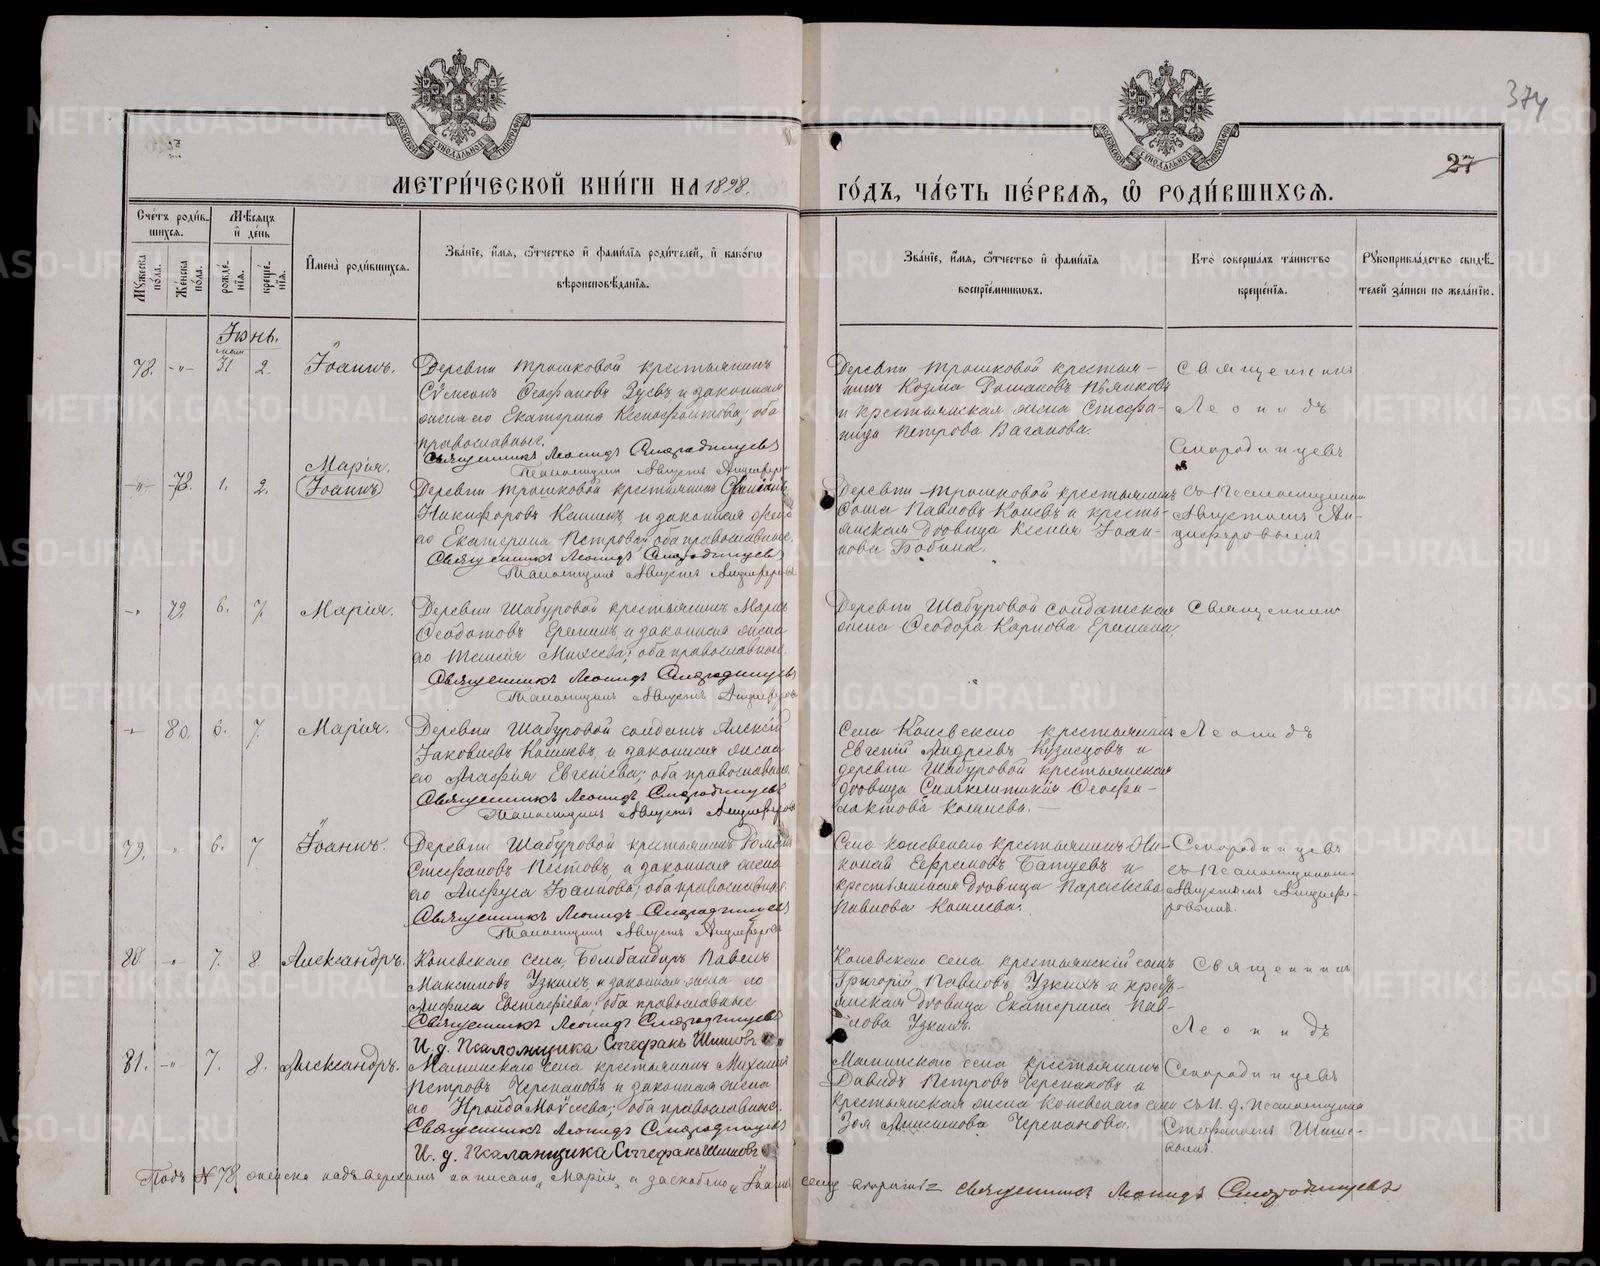 374
27
МОСКОВСКОЙ СѴНОДАЛЬНОЙ ТИПОГРАФІИ
МОСКОВСКОЙ СѴНОДАЛЬНОЙ ТИПОГРАФІИ
МЕТРИ́ЧЕСКОЙ КНИ́ГИ НА 1898.
ГО́ДЪ, ЧА́СТЬ ПЕ́РВАЯ, Ѡ РОДИ́ВШИХСЯ.
Сче́тъ роди́в-
шихся.
Мꙋжеска по́ла.
Же́нска по́ла.
Мѣ́сяцъ
и҆ де́нь
рожде́-
нїя.
креще́-
нїя.
И҆мена̀ роди́вшихся.
Зва́нїе, и҆́мя, ѻ҆́тчество и҆ фами́лїя роди́телей, и҆ како́гѡ
вѣроисповѣ́данїя.
Зва́нїе, и҆́мя, ѻ҆́тчество и҆ фами́лїя
воспрїе́мникѡвъ.
Кто̀ соверша́лъ та́инство
креще́нїя.
Рꙋкоприкла́дство свидѣ́-
телей за́писи по жела́нїю.
Іюнь.
78. -"- 31 2. Іоаннъ.
Деревни Трошковой крестьянинъ
Сѵмеонъ Ѳеофановъ Зуевъ и законная
жена его Екатерина Ксенофонтова; оба
православные.
Священникъ Леонидъ Смородинцевъ
Псаломщикъ Августъ Анциферовъ
Деревни Трошковой крестья-
нинъ Козма Романовъ Пьянковъ
и крестьянская жена Стефа-
нида Петрова Ваганова.
Священникъ
Леонидъ
Смородинцевъ
-"- 78. 1. 2. Марія.
(Іоаннъ)
Деревни Трошковой крестьянинъ
Никифоровъ и законная жена
его Екатерина Петрова; оба православные.
Священникъ Леонидъ Смородинцевъ
Псаломщикъ Августъ Анциферовъ
Деревни Трошковой крестьянинъ
Павловъ и кресть-
янская вдовица Ксенія Іоан-
нова Бабина.
съ Псаломщикомъ
Августомъ Ан-
циферовымъ
-"- 79 6. 7. Марія.
Деревни Шабуровой крестьянинъ
Ѳедотовъ Еремин и законная жена
его Михеева; оба православные.
Священникъ Леонидъ Смородинцевъ
Псаломщикъ Августъ Анциферовъ
Деревни Шабуровой солдатская
жена Ѳеодора Карпова Еремина.
Священникъ
-"- 80. 6. 7. Марія.
Деревни Шабуровой солдатъ Алексій
Іаковлевъ и законная жена
его Агафія Евгеніева; оба православные.
Священникъ Леонидъ Смородинцевъ
Псаломщикъ Августъ Анциферовъ
Села Коневскаго крестьянинъ
Евгеній Андреевъ Кузнецовъ и
деревни Шабуровой крестьянская
вдовица Синклитикія Ѳеофи-
лактова
Леонидъ
79. " 6. 7 Іоаннъ.
Деревни Шабуровой крестьянинъ Романъ
Стефановъ Пестовъ и законная жена
его Анфуса Іоаннова; оба православные.
Священникъ Леонидъ Смородинцевъ
Псаломщикъ Августъ Анциферовъ
Села Коневскаго крестьянинъ Ни-
колай Ефремовъ Батуевъ и
крестьянская вдовица Параскева
Павлова
Смородинцевъ
съ Псаломщикомъ
Августомъ Анцифе-
ровымъ.
80 -"- 7. 8. Александръ.
Коневскаго села, Бомбандиръ Павелъ
Максимовъ Узкихъ и законная жена его
Анфиса Евстафіева; оба православные
Священникъ Леонидъ Смородинцевъ
И. д. Псаломщика Стефанъ Шишовъ
Коневскаго села крестьянскій сынъ
Григорій Павловъ Узкихъ и кресть-
янская вдовица Екатерина Пав-
лова Узкихъ.
Священникъ
Леонидъ
81. -"- 7. 8. Александръ.
Маминскаго села крестьянинъ Михаилъ
Петровъ Черепановъ и законная жена
его Ираида Моѵсеева; оба православные.
Священникъ Леонидъ Смородинцевъ
И. д. Псаломщика Стефанъ Шишовъ
Маминскаго села крестьянинъ
Давидъ Петровъ Черепановъ и
крестьянская жена Коневскаго села
Зоя Анисимова Черепанова.
Смородинцевъ
съ И. д. Псаломщика
Стефаномъ Шишо-
вымъ.
Подъ № 78 женска надъ верхомъ написано „Марія“ и заскоблено „Іоаннъ“ сему вѣрить= Священникъ Леонидъ Смородинцевъ
METRIKI.GASO-URAL.RU